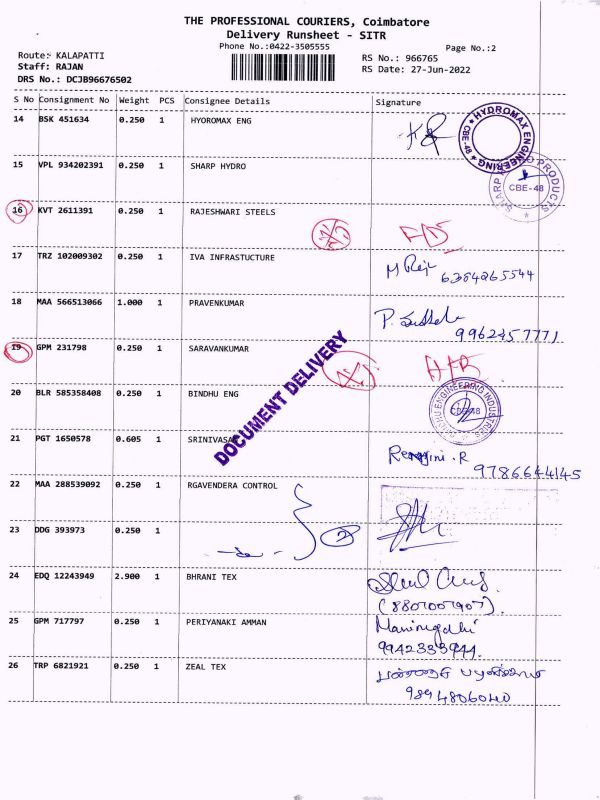 THE PROFESSIONAL COURIERS, Coimbatore
Delivery Runsheet - SITR
Phone No.:0422-3505555
Page No.:2
Route: KALAPATTI
RS No.: 966765
Staff: RAJAN
RS Date: 27-Jun-2022
DRS No.: DCJB96676502
S No Consignment No Weight PCS Consignee Details Signature
14 BSK 451634 0.250 1 HYOROMAX ENG
HYDROMAX ENGINEERING CBE-48
15 VPL 934202391 0.250 1 SHARP HYDRO
SHARP PRODUCTS CBE-48
16 KVT 2611391 0.250 1 RAJESHWARI STEELS
17 TRZ 102009302 0.250 1 IVA INFRASTUCTURE
6384265544
18 MAA 566513066 1.000 1 PRAVENKUMAR
9962457771
19 GPM 231798 0.250 1 SARAVANKUMAR
DOCUMENT DELIVERY
20 BLR 585358408 0.250 1 BINDHU ENG
ENGINEERING INDUSTRIES CBE-48
21 PGT 1650578 0.605 1 SRINIVASA
9786644145
22 MAA 288539092 0.250 1 RGAVENDERA CONTROL
23 DDG 393973 0.250 1
-do-
2
24 EDQ 12243949 2.900 1 BHRANI TEX
(8807007907).
25 GPM 717797 0.250 1 PERIYANAKI AMMAN
9942333944.
26 TRP 6821921 0.250 1 ZEAL TEX
9894806040